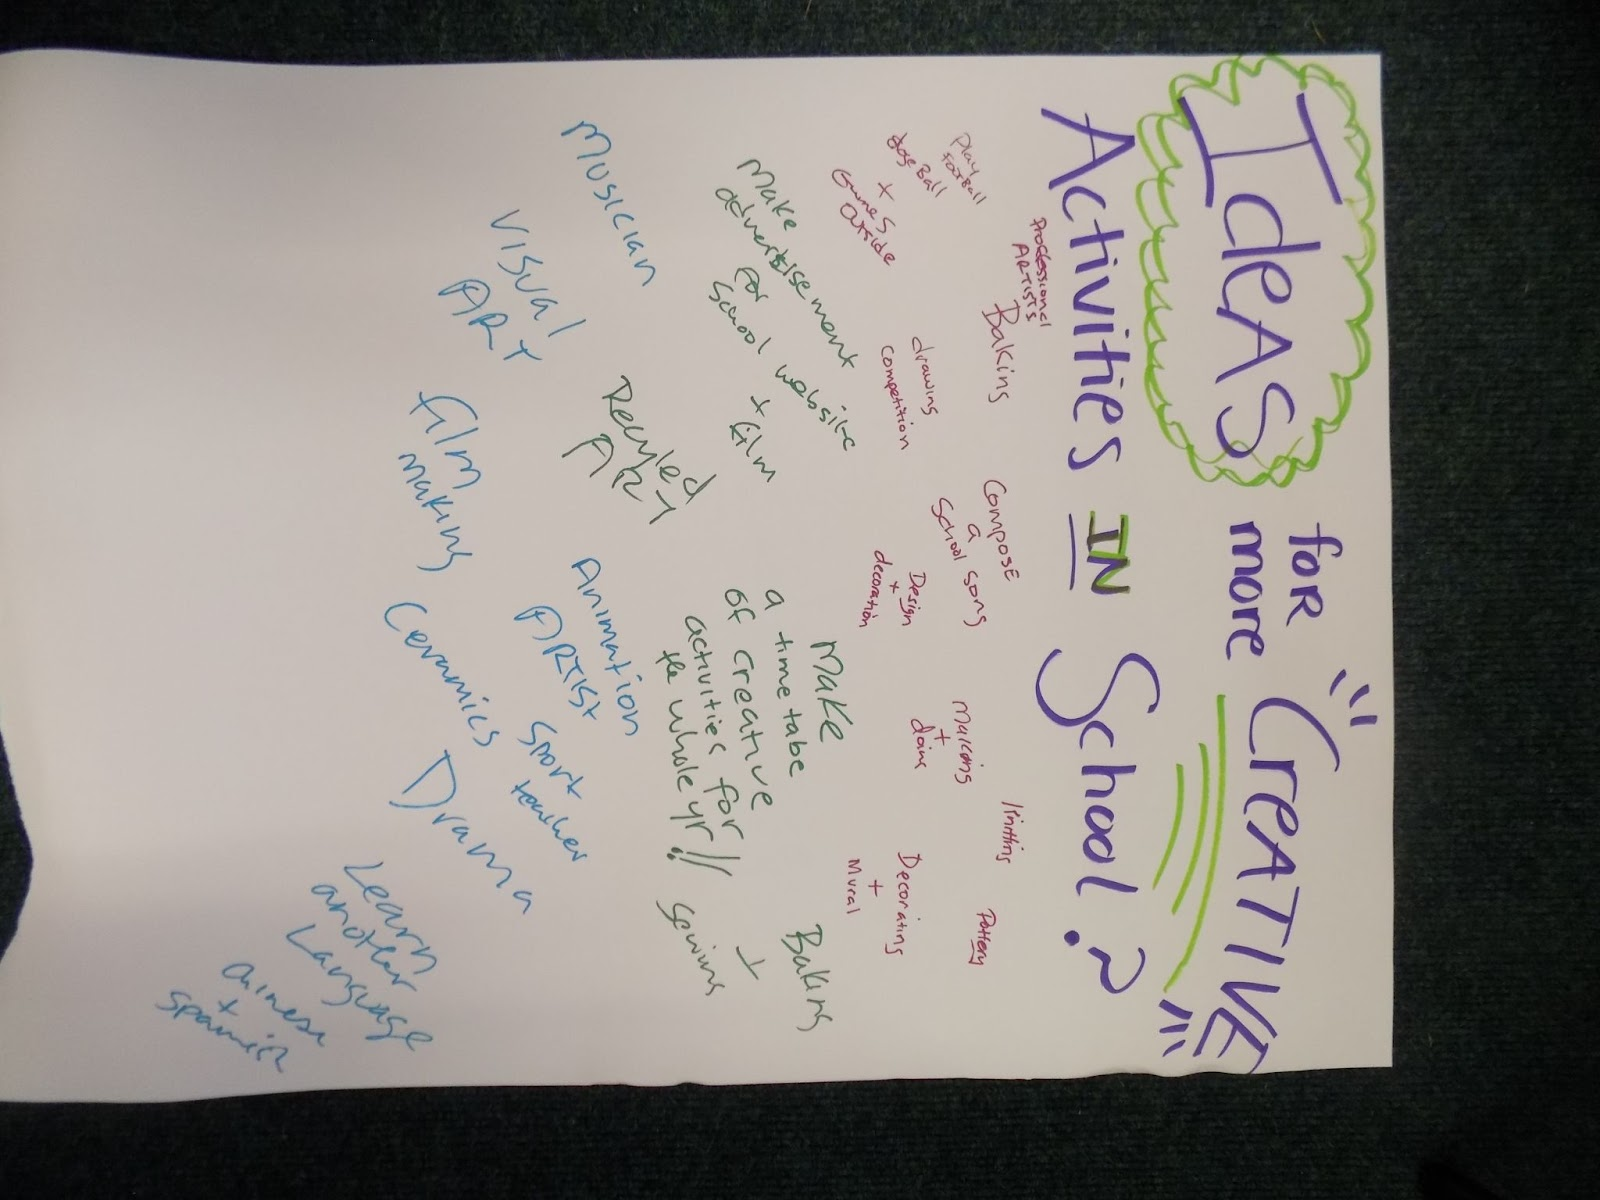 IdeAS for
more "CreATIVE"
Activities IN School?
Professional
ARTISTS
Baking
Play
football
dogeBall
+
GameS
outside
drawing
competition
Compose
a
School song
Design
+
decoration
Making
+
doing
Pottery
Decorating
+
Mural
Make
advertisement
for
School website
+ film
Recyled
ART
Make
a time tabe
of creative
activities for
the whole yr!!
Baking
+
Sewing
Musician
Visual
ART
film
making
Animation
ARTIST
Ceramics
Sport
teacher
Drama
Learn
another
Language
chinese
+
Spanish